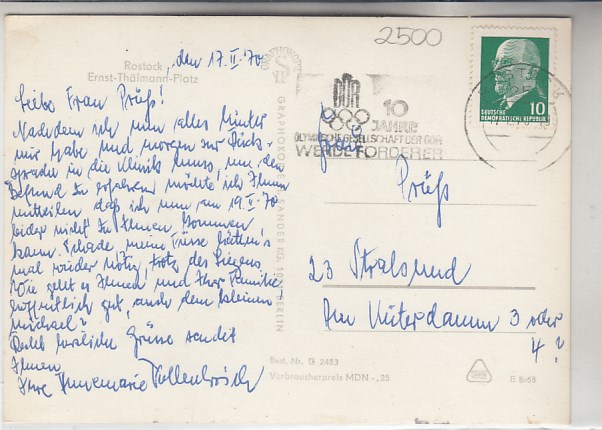 2500
Rostock
Ernst-Thälmann-Platz
, den 17.II.70
Liebe Frau Prüß!
Nachdem ich nun alles hinter
mir habe und morgen zur Rück-
sprache in die Klinik muss, um den
Befund zu erfahren möchte ich Ihnen
mitteilen daß ich nun am 19.II.70
leider nicht zu Ihnen kommen
kann. Schade, meine Füße hätten's
mal wieder nötig, trotz des Liegens.
Wie geht es Ihnen und Ihrer Familie
hoffentlich gut, auch dem kleinen
Michael?
Recht herzliche Grüße sendet
Ihnen
Ihre Annemarie
GRAPHOKOPIE
DDR
10
JAHRE
OLYMPISCHE GESELLSCHAFT DER DDR
WERDE FÖRDERER
DEUTSCHE
DEMOKRATISCHE REPUBLIK
10
Frau
Prüß
23 Stralsund
Am Knieperdamm 3 oder
4?
Best. Nr. G 2483
Verbraucherpreis MDN -,25
B 8/68